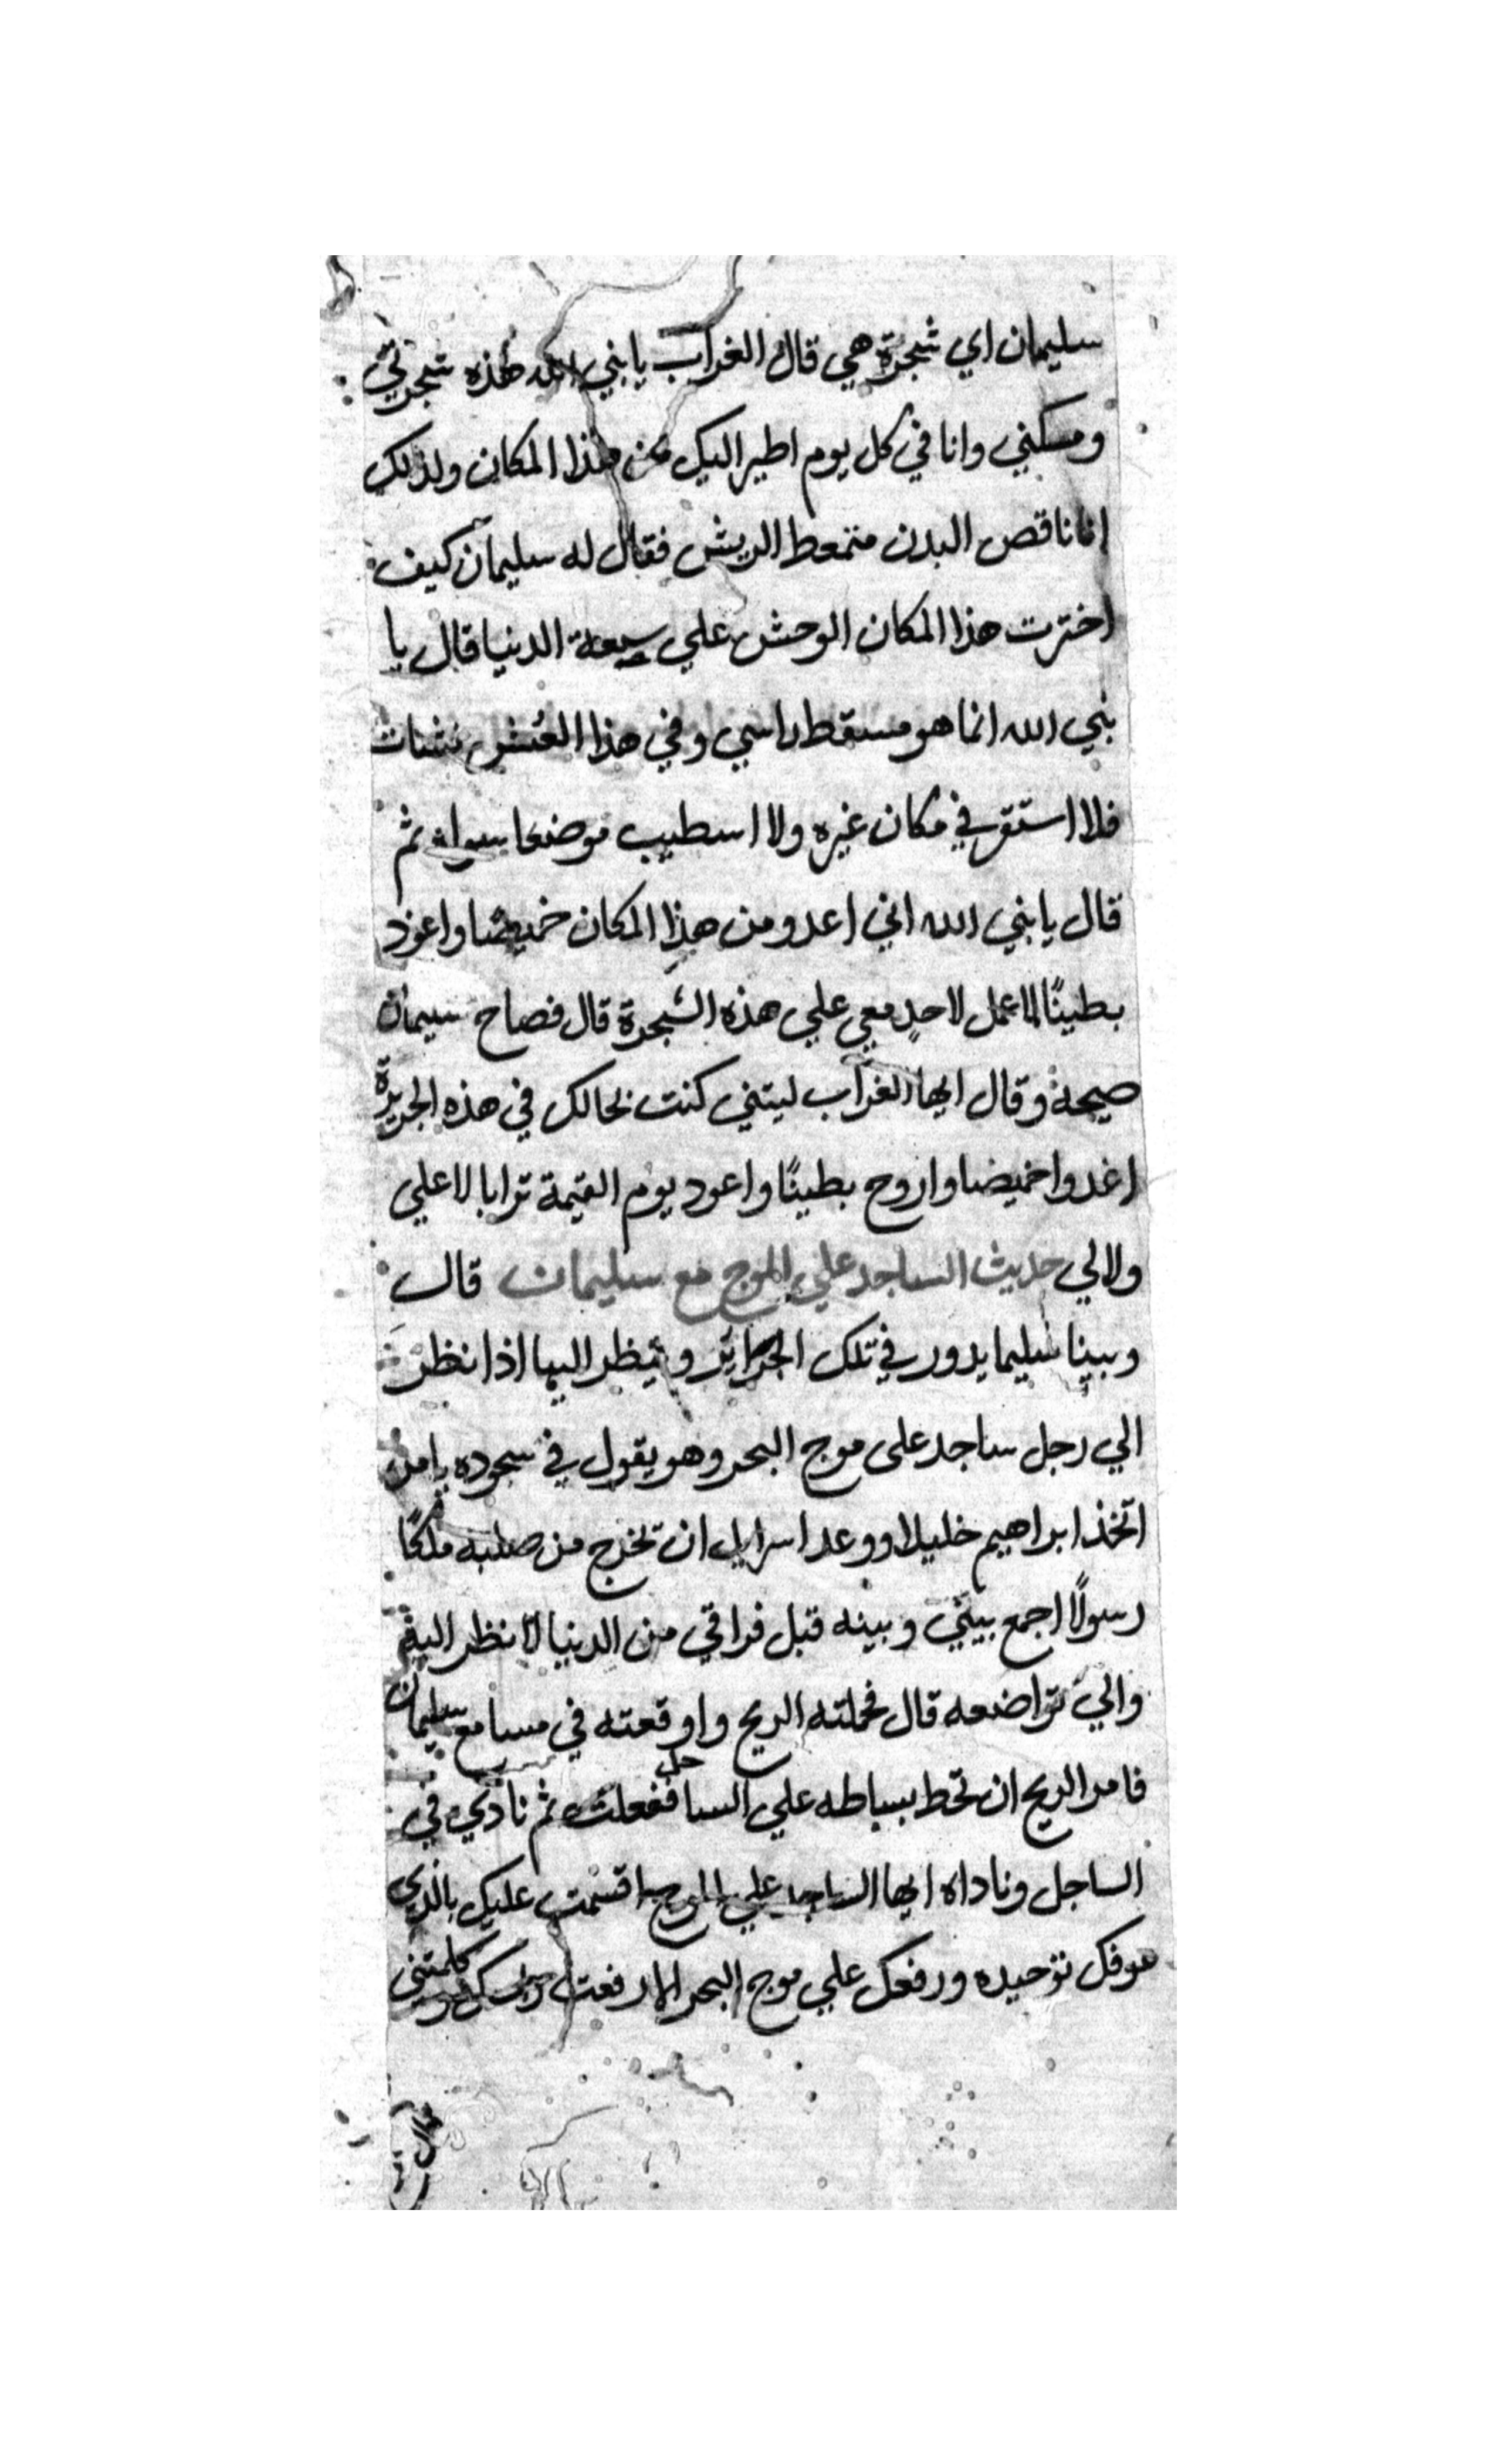 سليمان اي شجرة هي قال الغراب يا نبي الله هذه شجرتي
ومسكني وانا في كل يوم اطير اليك من هذا المكان ولذلك
انا ناقص البدن متمعط الريش فقال له سليمان كيف
اخترت هذا المكان الوحش علي سعة الدنيا قال يا
نبي الله انما هو مسقط راسي وفي هذا العش نشات
فلا استقر في مكان غيره ولا اسطيب موضعا سواه ثم
قال يا نبي الله اني اعدو من هذا المكان خميصا واعود
بطينًا لا عمل لاحدٍ معي علي هذه الشجرة قال فصاح سيمان
صيحة وقال ايها الغراب ليتني كنت بحالك في هذه الجزيرة
اغدوا خميضا واروح بطينًا واعود يوم القيمة ترابا لا علي
ولا لي حديث الساجد علي الموج مع سليمان قال
وبينا سليما يدور في تلك الجزائر وينظر اليها اذا نظر
الي رجل ساجد على موج البحر وهو يقول في سجوده يا من
اتخذ ابراهيم خليلا ووعد اسرايل ان تخرج من صلبه ملكًا
رسولًا اجمع بيني وبينه قبل فراقي من الدنيا لانظر اليه
والي تواضعه قال فحملته الريح واوقعته في مسامع سليمان
فامر الريح ان تحط بساطه علي الساحل ففعلت ثم نادي في
الساجل وناداه ايها الساجد علي الموج اقسمت عليك بالذي
هو فك توحيده ورفعك علي موج البحر الا رفعت راسك كلمتني